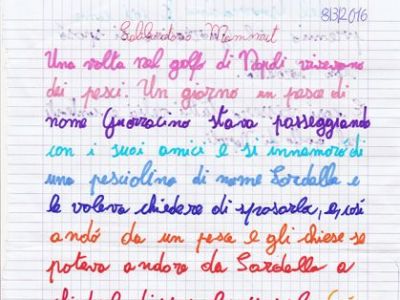 8/3/2016
Una volta nel golfo di Napoli vivevano
dei pesci. Un giorno un pesce di
nome Guarracino stava passeggiando
con i suoi amici e si innamorò di
una pesciolina di nome Sardella e
le voleva chiedere di sposarla, e, così
andó da un pesce e gli chiese se
poteva andare da Sardella a